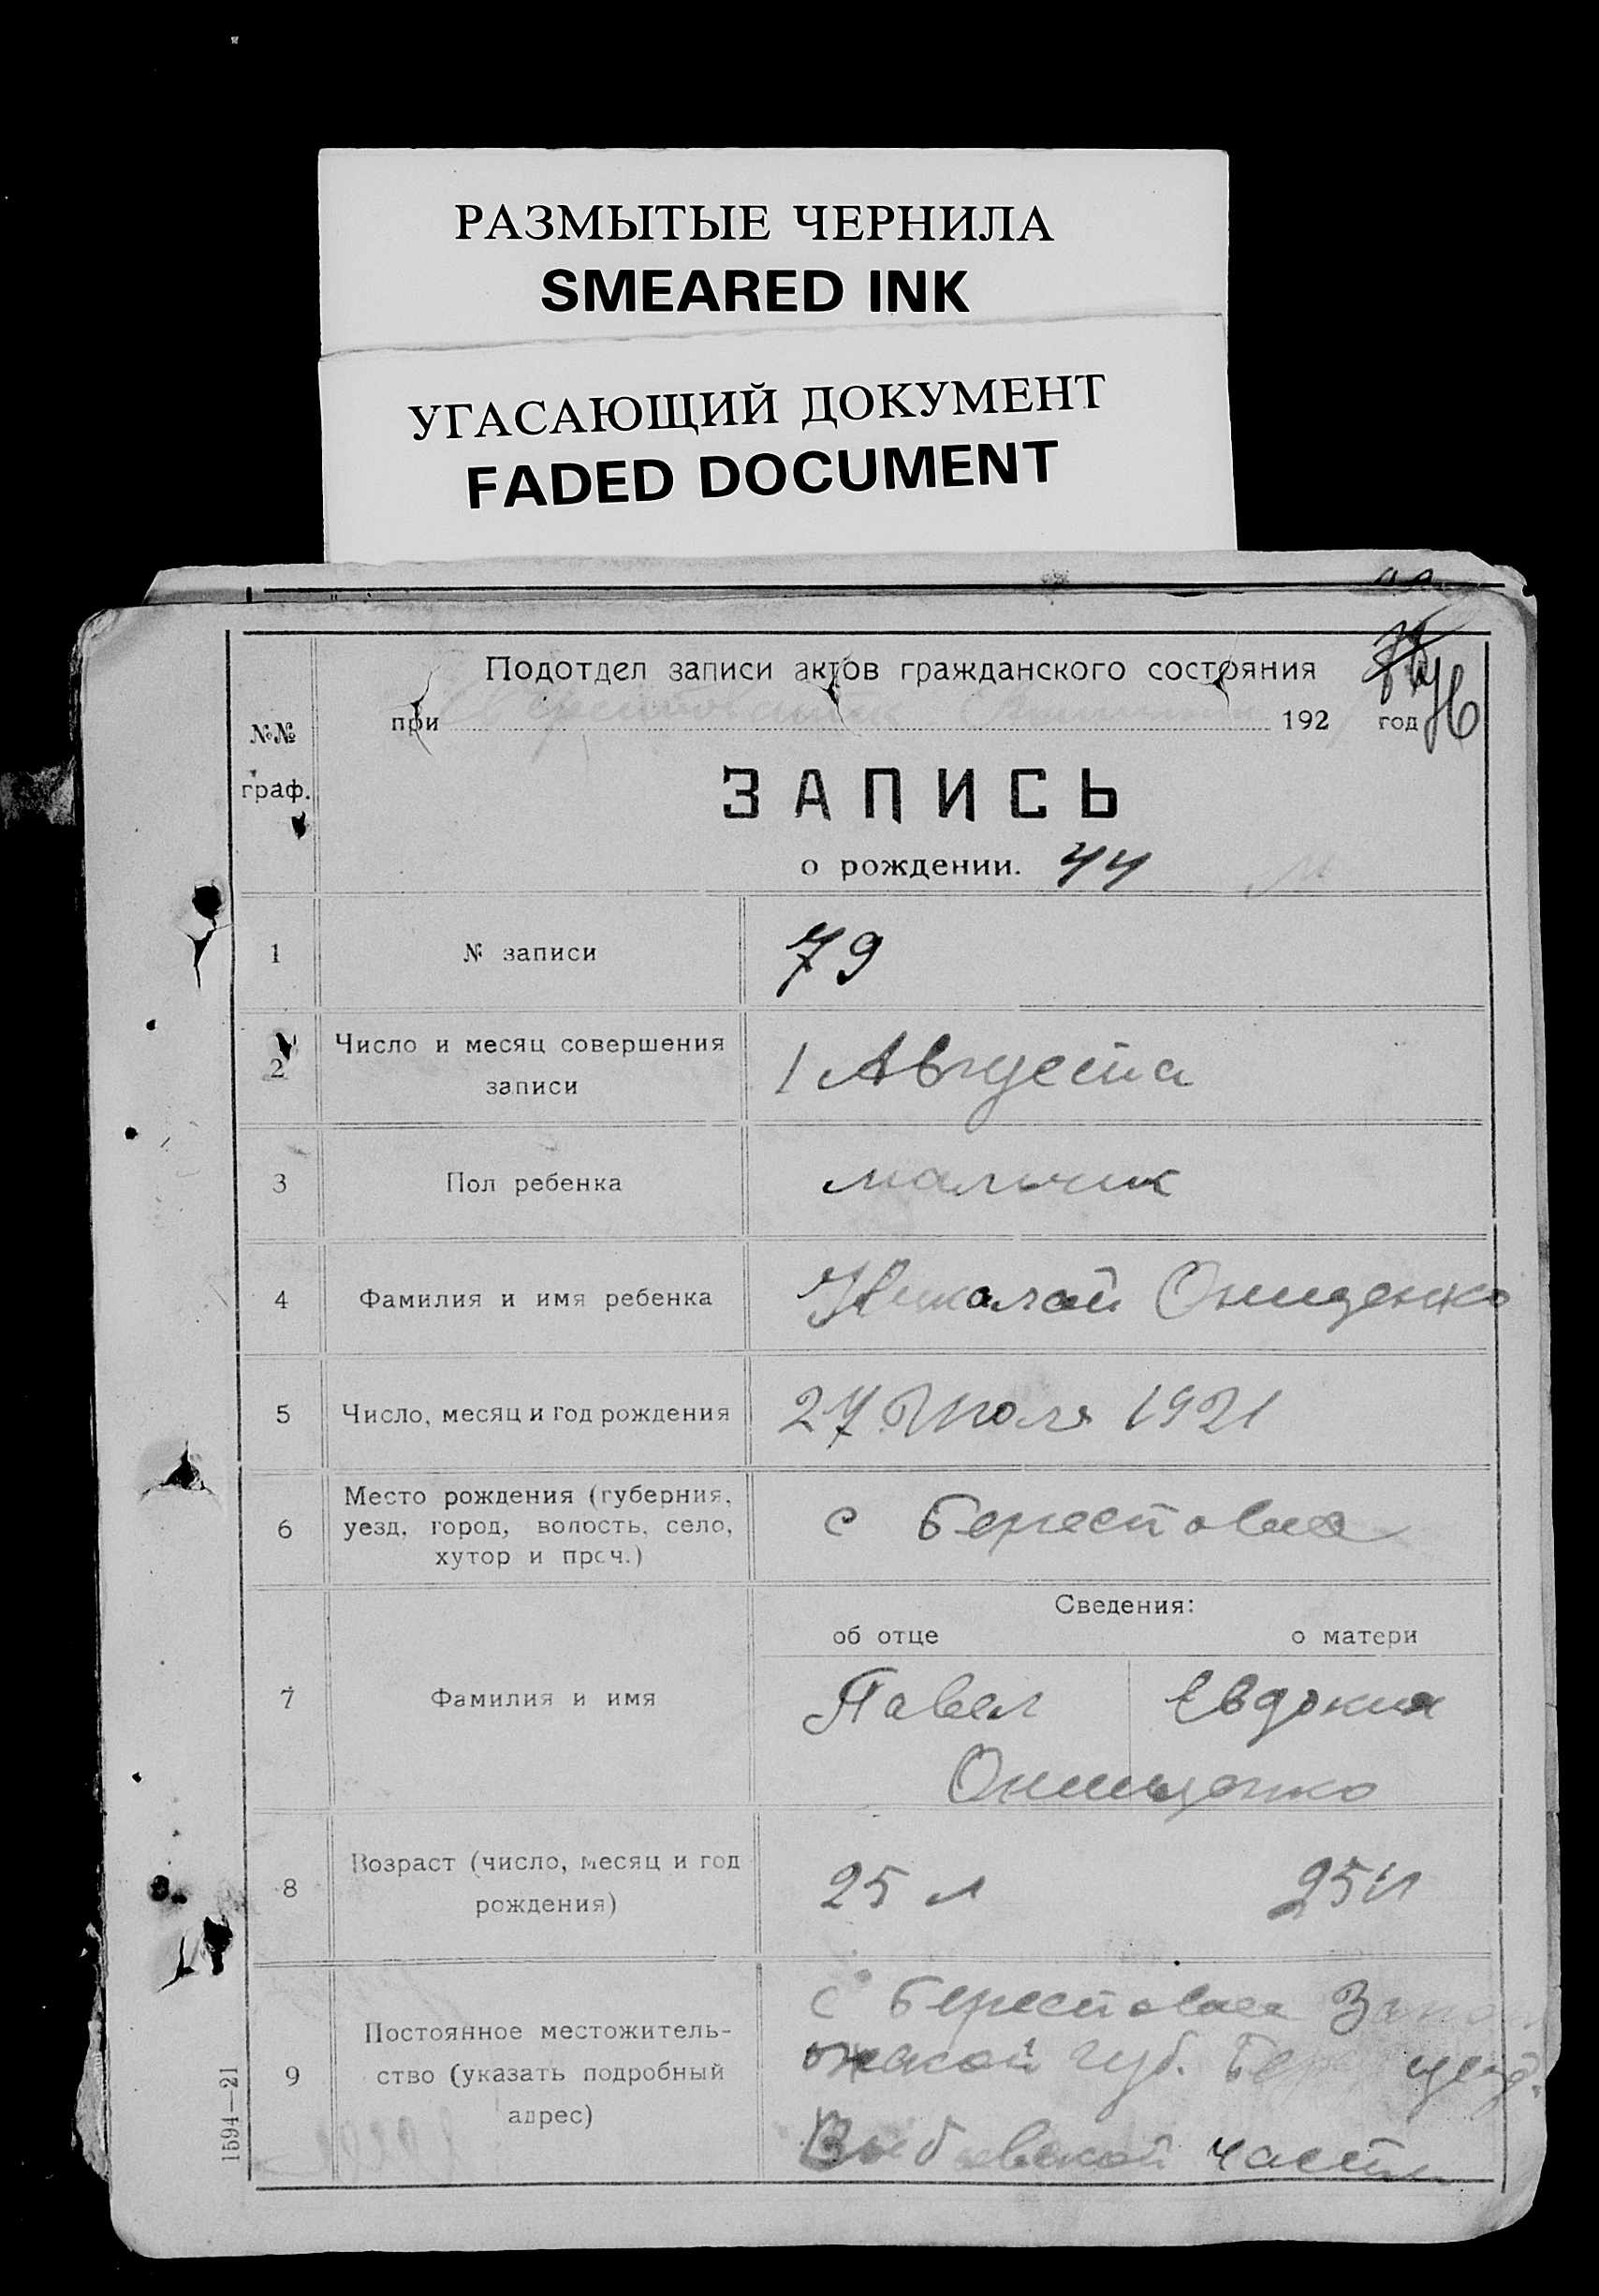 РАЗМЫТЫЕ ЧЕРНИЛА
SMEARED INK
УГАСАЮЩИЙ ДОКУМЕНТ
FADED DOCUMENT
Подотдел записи актов гражданского состояния
при 192 год
76
№№ граф.
ЗАПИСЬ
о рождении. 44
1 № записи 79
2 Число и месяц совершения записи 1 Августа
3 Пол ребенка мальчик
4 Фамилия и имя ребенка Николай Онищенко
5 Число, месяц и год рождения 27 Июля 1921
6 Место рождения (губерния,
уезд, город, волость, село,
хутор и проч.)
с Берестовая
Сведения:
об отце о матери
7 Фамилия и имя Павел Евдокия
Онищенко
8 Возраст (число, месяц и год
рождения)
25 л 25 л
9 Постоянное местожитель-
ство (указать подробный
адрес)
с Берестовая
губ. уезд.
части
1594—21